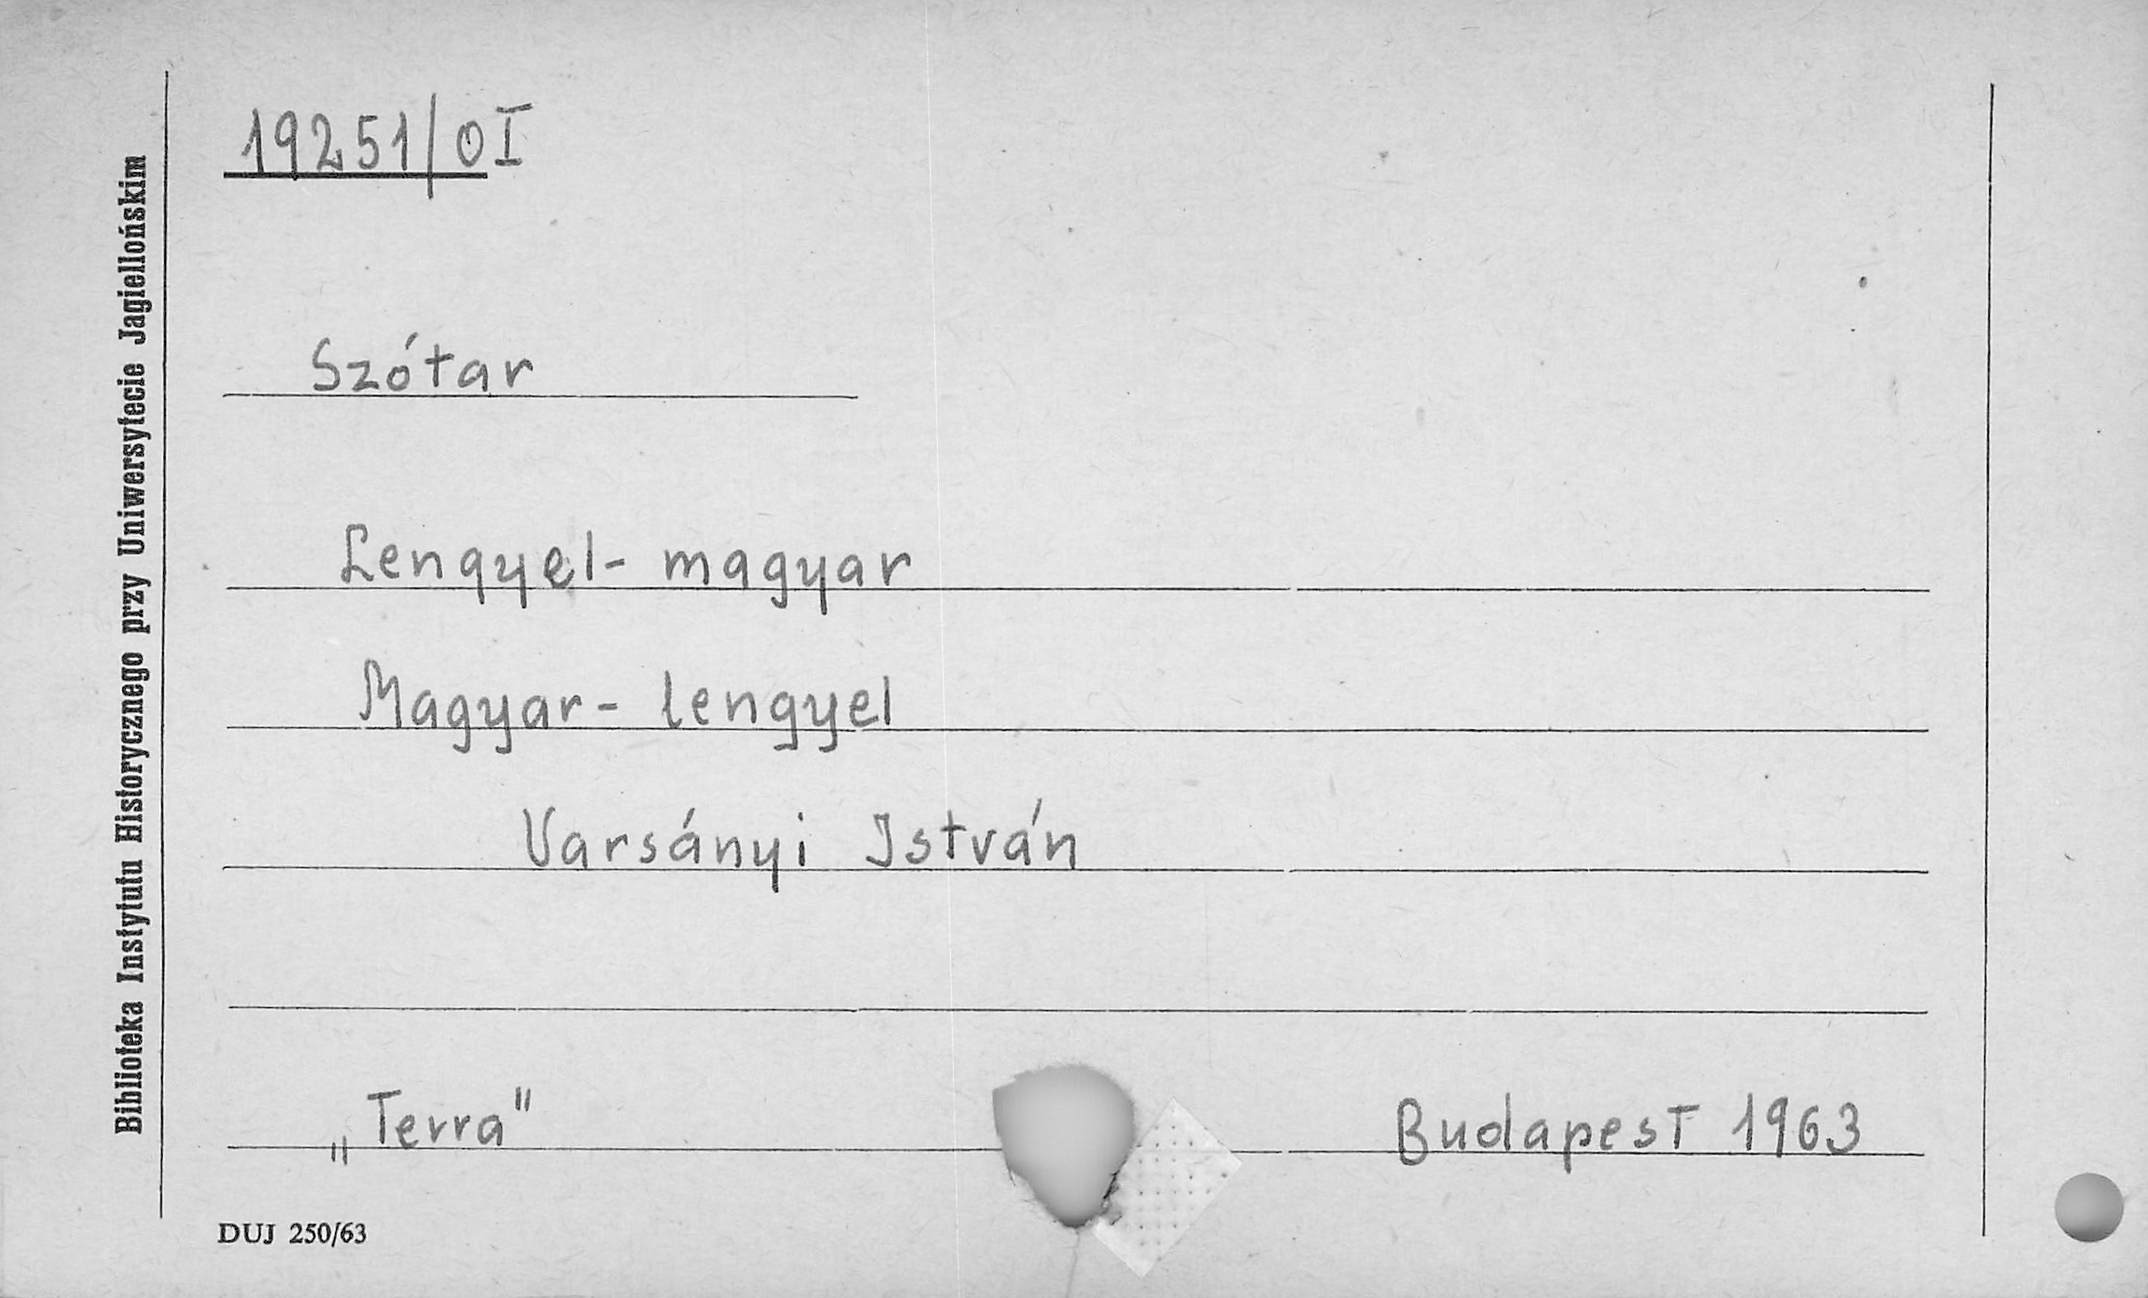 Biblioteka Instytutu Historycznego przy Uniwersytecie Jagiellońskim
19251/OI
Szótar
Lengyel- magyar
Magyar- lengyel
Varsányi István
„Terra"
Budapest 1963
DUJ 250/63